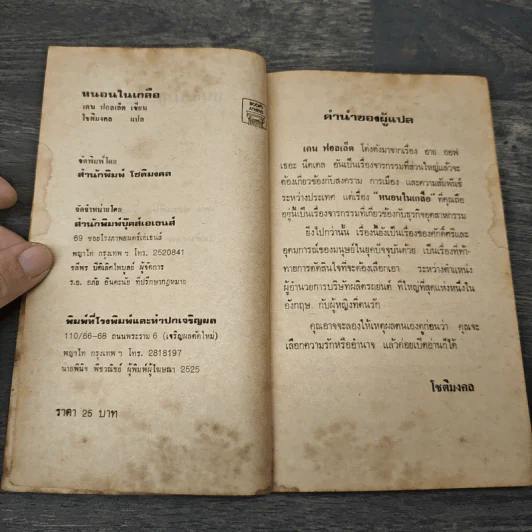 หนอนในเกลือ
เคน ฟอลเล็ต เขียน
โชติมงคล แปล
จัดพิมพ์โดย
สำนักพิมพ์ โชติมงคล
จัดจำหน่ายโดย
สำนักพิมพ์บุ๊คส์เอเธนส์
69 ซอยโรงภาพยนตร์เอเธนส์
พญาไท กรุงเทพ ฯ โทร. 2520841
ผู้จัดการ
ร.อ. ที่ปรึกษากฎหมาย
พิมพ์ที่โรงพิมพ์และทำปกเจริญผล
110/66-68 ถนนพระราม 6 (เจริญผลตัดใหม่)
พญาไท กรุงเทพ ฯ โทร. 2816197
นายพินิจ ผู้พิมพ์ผู้โฆษณา 2525
ราคา 25 บาท
BOOKS
คำนำของผู้แปล
เคน ฟอลเล็ต โด่งดังมาจากเรื่อง อาย ออฟ
เธอะ นีดเดิล อันเป็นเรื่องจารกรรมที่ส่วนใหญ่แล้วจะ
ต้องเกี่ยวข้องกับสงคราม การเมือง และความสัมพันธ์
ระหว่างประเทศ แต่เรื่อง "หนอนในเกลือ" ที่คุณถือ
อยู่นี้เป็นเรื่องจารกรรมที่เกี่ยวข้องกับธุรกิจอุตสาหกรรม
ยิ่งไปกว่านั้น เรื่องนี้ยังเป็นเรื่องของศักดิ์ศรีและ
อุดมการณ์ของมนุษย์ในยุคปัจจุบันด้วย เป็นเรื่องที่ท้า-
ทายการตัดสินใจที่จะต้องเลือกเอา ระหว่างตำแหน่ง
ผู้อำนวยการบริษัทผลิตรถยนต์ ที่ใหญ่ที่สุดแห่งหนึ่งใน
อังกฤษ กับผู้หญิงที่คนรัก
คุณอาจจะลองให้เหตุผลตนเองดูก่อนว่า คุณจะ
เลือกความรักหรืออำนาจ แล้วค่อยเปิดอ่านก็ได้
โชติมงคล